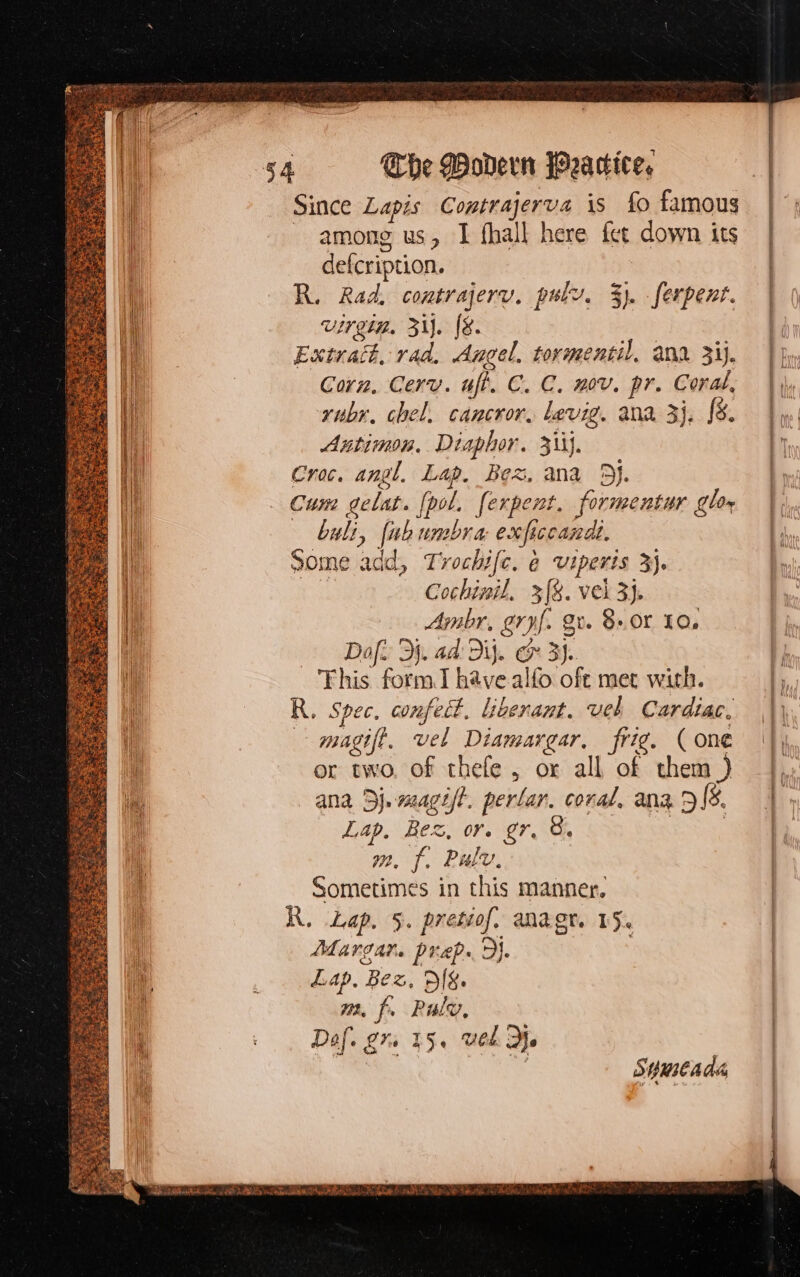 54 The Modern Practice,
Since Lapis Contrajerva is ſo famous
among us, I ſhall here ſet down its
deſcription.
R. Rad. contrajerv. pulv. ℥j. ſerpent.
virgin. ʒij. ſß.
Extract. rad. Angel. tormentil. ana ʒij.
Corn. Cerv. uſt. C. C. nov. pr. Coral,
rubr. chel. cancror. levig. ana ʒj. ſß.
Antimon. Diaphor. ʒiij.
Croc. angl. Lap. Bez. ana ℈j.
Cum gelat. ſpol. ſerpent. formentur glo-
buli, ſub umbra exſiccandi.
Some add, Trochiſc. è viperis ʒj.
Cochinil. ʒſß. vel ʒj.
Ambr. gryſ. gr. 8. or 10.
Doſ. ℈j. ad ℈ij. & ʒj.
This form I have alſo oft met with.
R. Spec. confect. liberant. vel Cardiac.
magiſt. vel Diamargar. frig. (one
or two of theſe, or all of them)
ana ℈j. magiſt. perlar. coral. ana ℈ſß.
Lap. Bez. or. gr. 8.
m. f. Pulv.
Sometimes in this manner.
R. Lap. 5. pretioſ. ana gr. 15.
Margar. prep. ℈j.
Lap. Bez. ℈ſß.
m. f. Pulv.
Doſ. gr. 15. vel ℈j.
Sumeada